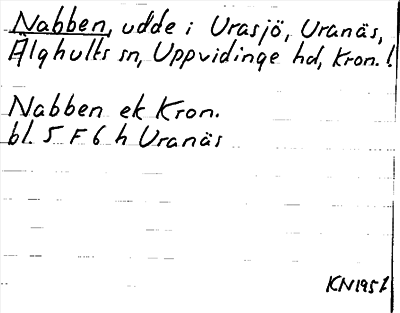 Nabben, udde i Urasjö, Uranäs,
Älghults sn, Uppvidinge hd, Kron. l.
Nabben ek Kron.
bl. 5 F 6 h Uranäs
KN 1957